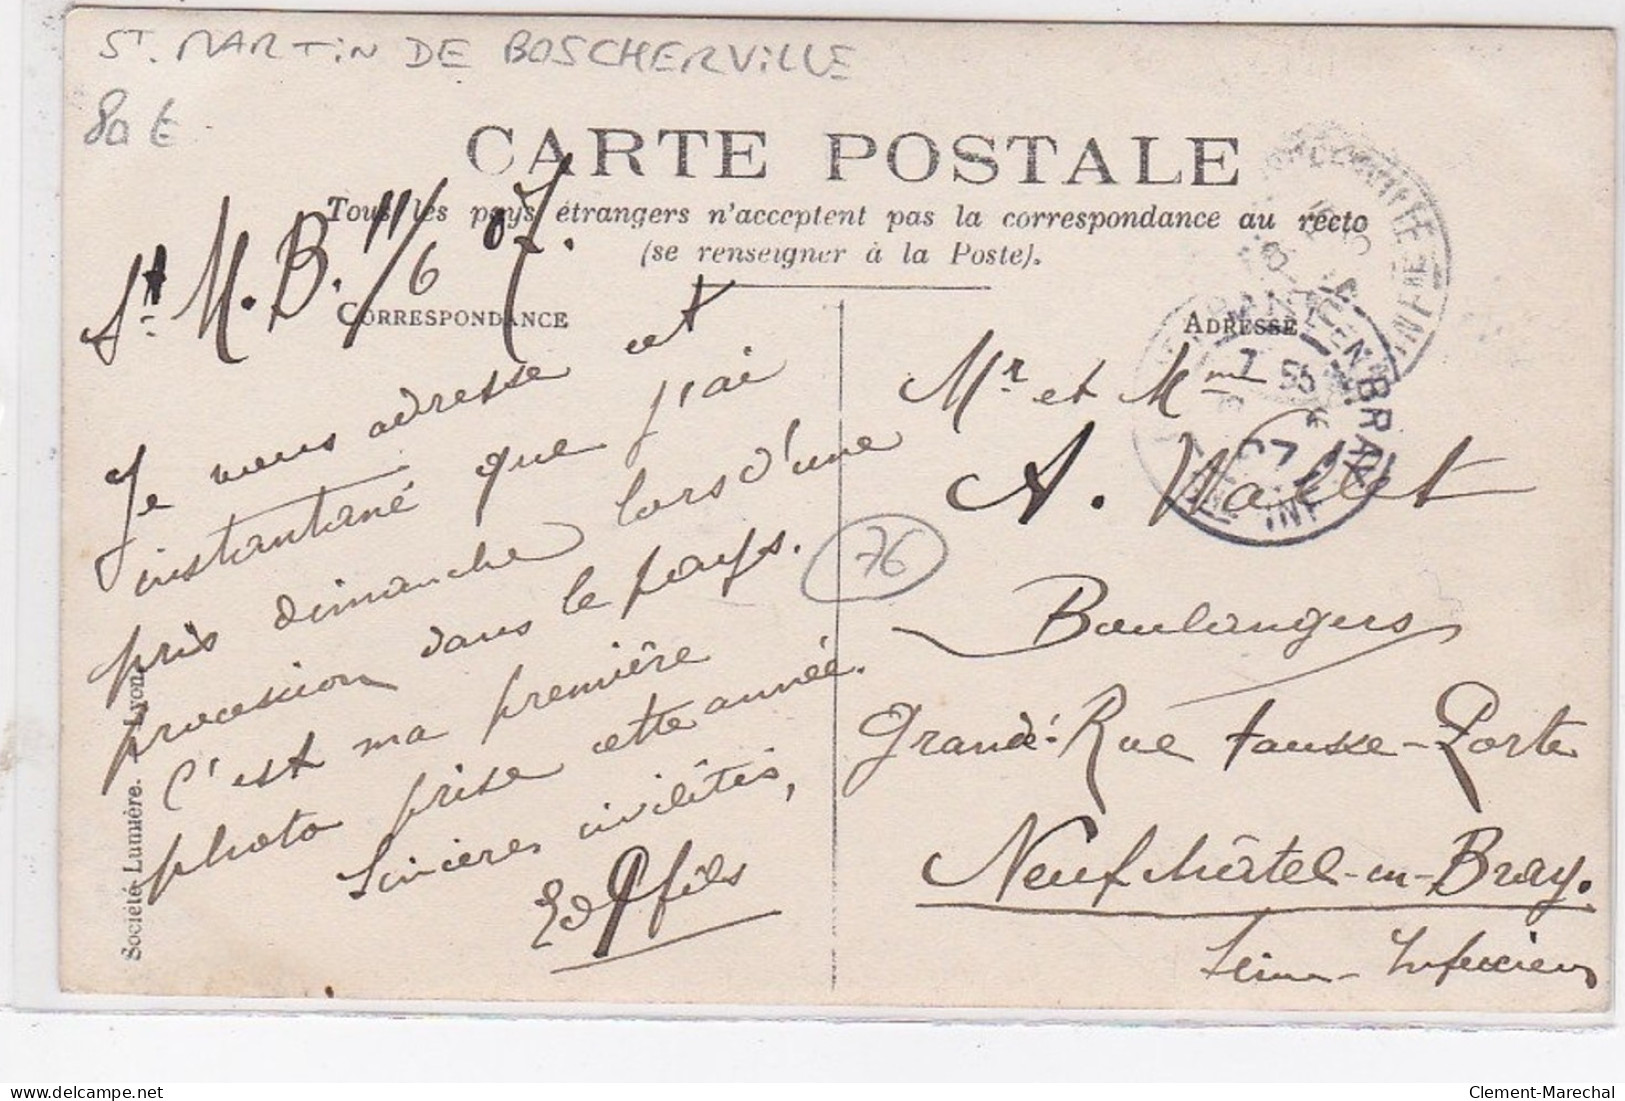 ST. MARTIN DE BOSCHERVILLE
80 €
CARTE POSTALE
Tous les pays étrangers n'acceptent pas la correspondance au recto
(se renseigner à la Poste).
CORRESPONDANCE
ADRESSE
St M. B. 11/6 07.
Je vous adresse cet
instantané que j'ai
pris dimanche lors d'une
procession dans le pays.
C'est ma première
photo prise cette année.
Sincères civilités,
Ed P fils
76
Mr et Mme
A. Wallet
Boulangers
Grande Rue Fausse-Porte
Neufchâtel-en-Bray.
Seine-Inférieure
Société Lumière. - Lyon.
EN BRAY
07
Clement-Marechal
delcampe.net